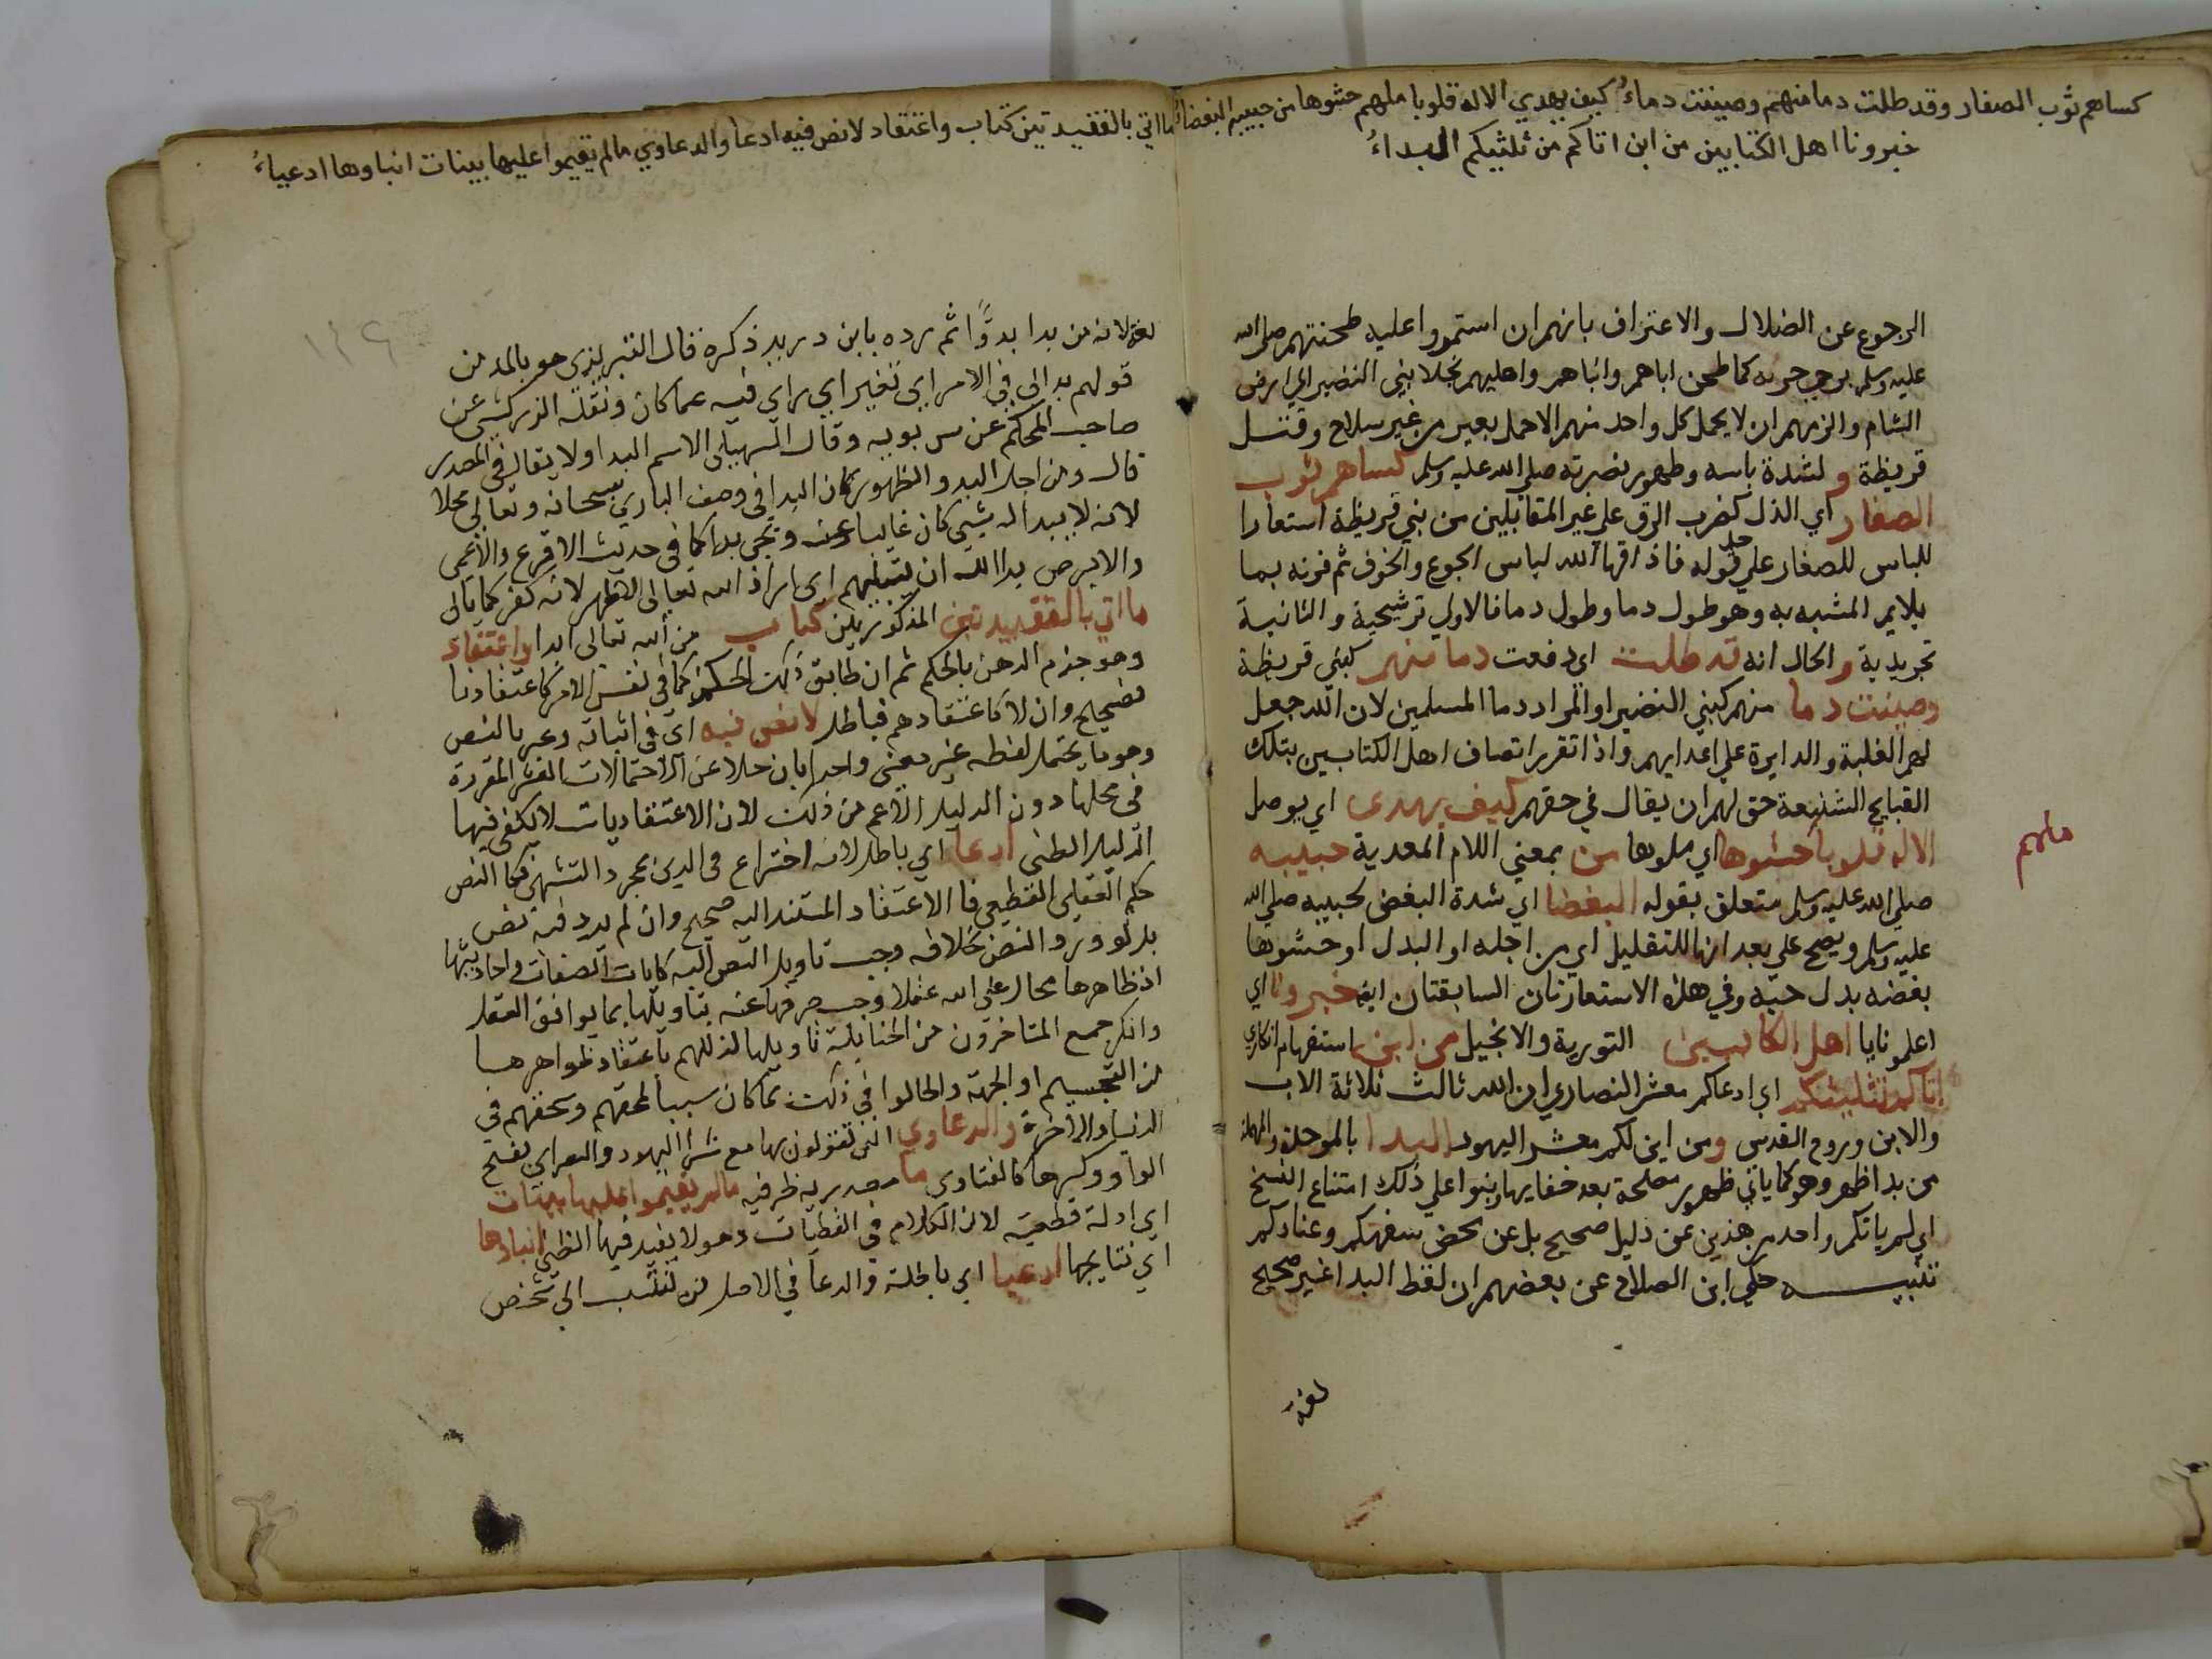 كساهم ثوب الصغار وقد طلت دما منهم وصينت دماءُ كيف يهدي الاله قلوبا ملهم حشوها من حبيبه البغضاءُ
خبرونا اهل الكتابين من اين اتاكم من ثلثيكم البداءُ
الرجوع عن الضلال والاعتراف بانهم ان استمروا عليه طحنتهم صلى الله
عليه وسلم كما طحن اباهم وانباهم واهليهم بجلا بني النضير الي ارض
الشام والزمهم ان لا يحمل كل واحد منهم الا حمل بعير من غير سلاح وقتل
قريظة ولشدة باسه وظهور نصرته صلى الله عليه وسلم كساهم ثوب
الصغار اي الذل كضرب الرق علي غير المقابلين من بني قريظة استعارا
للباس للصغار علي حد قوله فاذاقها الله لباس الجوع والخوف ثم قرنه بما
يلايم المشبه به وهو طول دما وطول دما فالاولي ترشيحية والثانية
تجريدية والحال انه قد طلت اي دفعت دما منهم كبني قريظة
وصينت دما منهم كبني النضير او المراد دما المسلمين لان الله جعل
لهم الغلبة والدايرة علي اعدايهم واذا تقرر اتصاف اهل الكتابين بتلك
القبايح الشنيعة حق لهم ان يقال في حقهم كيف يهدى اي يوصل
الاله قلوبا حشوها اي ملوها من بمعني اللام المعدية حبيبه
صلي الله عليه وسلم متعلق بقوله البغضا اي شدة البغض لحبيبه صلي الله
عليه وسلم ويصح علي بعد انها للتعليل اي من اجله او البدل اوحشوها
بغضه بدل حبه وفي هذه الاستعارتان السابقتان ايضا خبرونا اي
اعلمونا يا اهل الكتابين التورية والانجيل من اين استفهام انكاري
اتاكم تثليثكم اي ادعاكم معشر النصاري ان الله ثالث ثلاثة الاب
والابن وروح القدس ومن اين لكم معشر اليهود البدا بالموحدة والمهملة
من بدا ظهر وهو كما ياتي ظهور مصلحة بعد خفايها وبنوا علي ذلك امتناع النسخ
اي لم ياتكم واحد من هذين عن دليل صحيح بل عن محض سفهكم وعنادكم
تنبيه حكي ابن الصلاح عن بعضهم ان لفظ البدا غير صحيح
لغة
ملهم
ما اتي بالعقيدتين كتاب واعتقاد لا نص فيه ادعا والدعاوي ما لم يقيموا عليها بينات ابناوها ادعياءُ
١٢٩
لغة لانه من بدا بدوًّا ثم رده بابن دريد ذكره قال التبريزي هو بالمد من
قولهم بدا لي في الامر اي تغير اي راي فيه عما كان ونقله الزركشي عن
صاحب المحكم عن سيبويه وقال السهيلي الاسم البدا ولا يقال في المصدر
قال ومن اجل البدو والظهور كان البدا في وصف الباري سبحانه وتعالي محالا
لانه لا يبدا له شيي كان غايبا عنه وتجي بدا كما في حديث الاقرع والاعمي
والابرص بدا لله ان يبتليهم اي اراد الله تعالى لا ظهر لانه كفر كما ياتي
ما اتي بالعقيدتين المذكورتين كتاب من الله تعالى ابدا واعتقاد
وهو جزم الذهن بالحكم ثم ان طابق ذلك الحكم كما في نفس الامر كاعتقادنا
فصحيح وان لا كاعتقادهم فباطل لا نص فيه اي في اثباته وعبر بالنص
وهو ما يحتمل لفظه غير معنى واحد بان خلا عن الاحتمالات العشر المقررة
في محلها دون الدليل الاعم من ذلك لان الاعتقاديات لا يكفي فيها
الدليل الظني ادعا اي باطل لانه اختراع في الدين بمجرد التشهي كما النص
حكم العقلي القطعي فالاعتقاد المستند اليه صحيح وان لم يرد فيه نص
بل لو ورد النص بخلافه وجب تاويل النص اليه كايات الصفات واحاديثها
اذ ظاهرها محال علي الله عقلا وجب صرفها عنه بتاويلها بما يوافق العقل
وانكر جمع المتاخرون من الحنابلة تاويلها لذللهم باعتقاد ظواهرها
من التجسيم او الجهة واطالوا في ذلك بما كان سببا لمقتهم وسحقهم في
الدنيا والاخرة والدعاوي التي تتقولون بها معشر اليهود والنصاري بفتح
الواو وكسرها كالفتاوي ما مصدرية ظرفية ما لم يقيموا عليها بينات
اي ادلة قطعية لان الكلام في القطعيات وهو لا يفيد فيها الظني ابناوها
اي نتايجها ادعيا اي باطلة والدعا في الاصل من ينتسب الي شخص